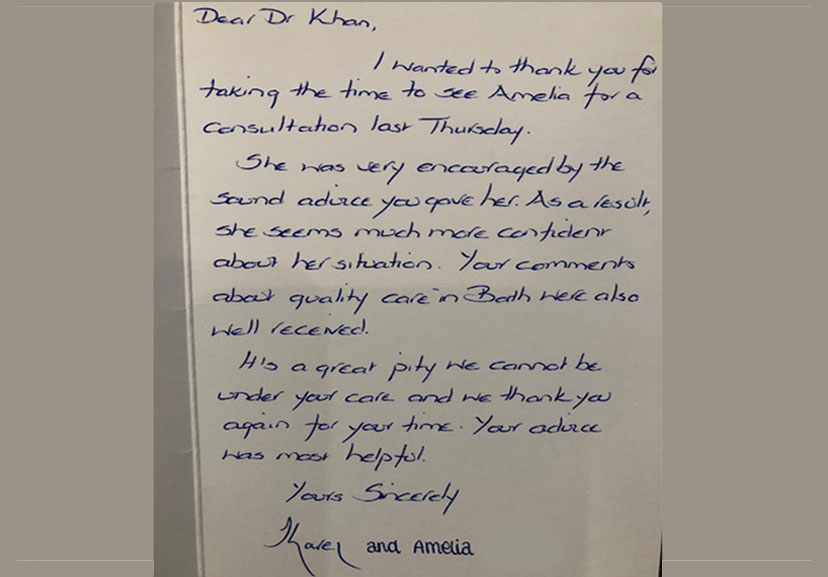 Dear Dr Khan,
I wanted to thank you for
taking the time to see Amelia for a
consultation last Thursday.
She was very encouraged by the
sound advice you gave her. As a result,
she seems much more confident
about her situation. Your comments
about quality care in Bath were also
well received.
It's a great pity we cannot be
under your care and we thank you
again for your time. Your advice
was most helpful.
Yours Sincerely
Karen and Amelia